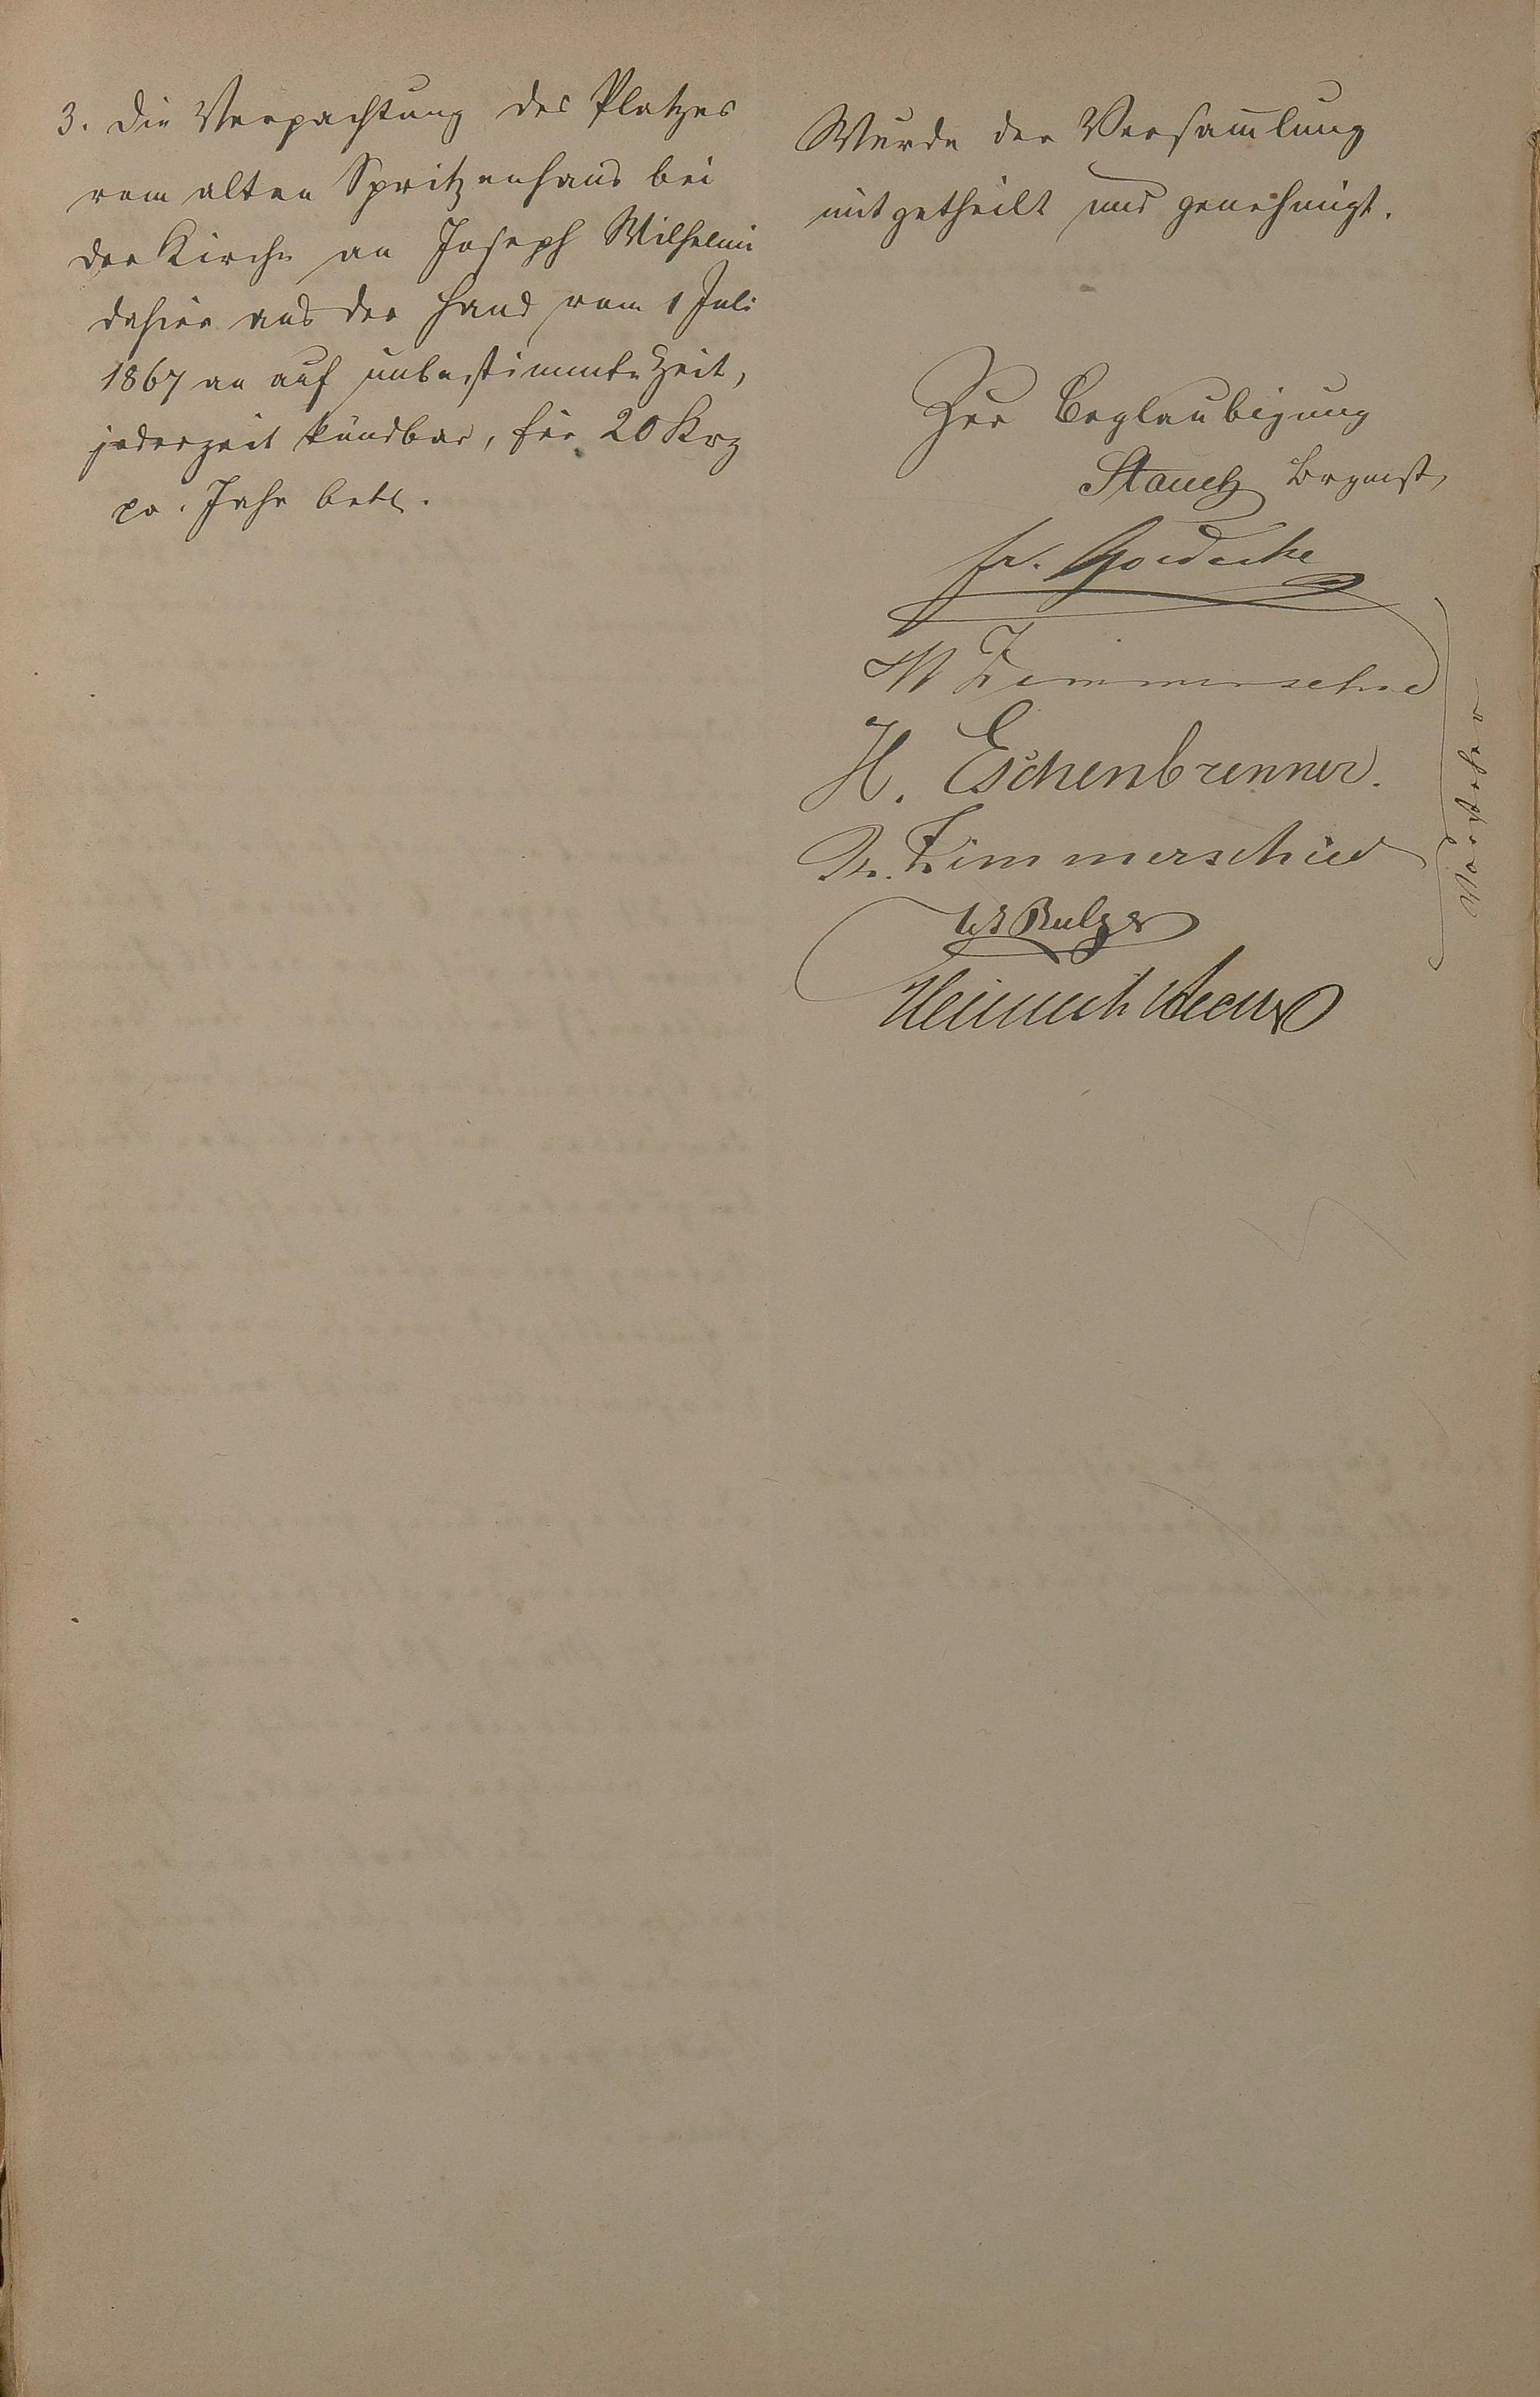 3. die Verpachtung des Platzes
vom alten Spritzenhaus bei
der Kirche an Joseph Wilhelmi
dahier aus der Hand vom 1 Juli
1867 an auf unbestimmte Zeit,
jederzeit kündbar, für 20 Krz
pr. Jahr betr.
Wurde der Versam̄lung
mitgetheilt und genehmigt.
Zur Beglaubigung
Stauch Brgmst,
Fr. Goedecke
W Zimmerschied
H. Eschenbrenner.
Zimmerschied
Heinrich
Vorsteher